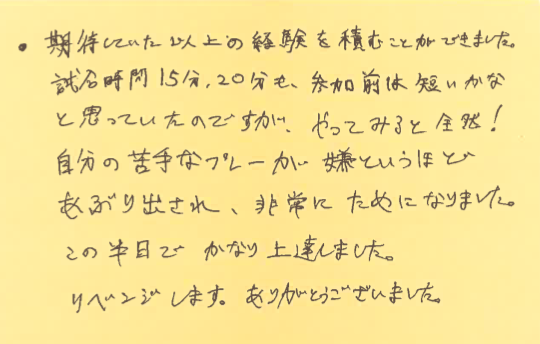 • 期待していた以上の経験を積むことができました。
試合時間15分、20分も、参加前は短いかな
と思っていたのですが、やってみると全然!
自分の苦手なプレーが嫌というほど
あぶり出され、非常にためになりました。
この半日でかなり上達しました。
リベンジします。ありがとうございました。